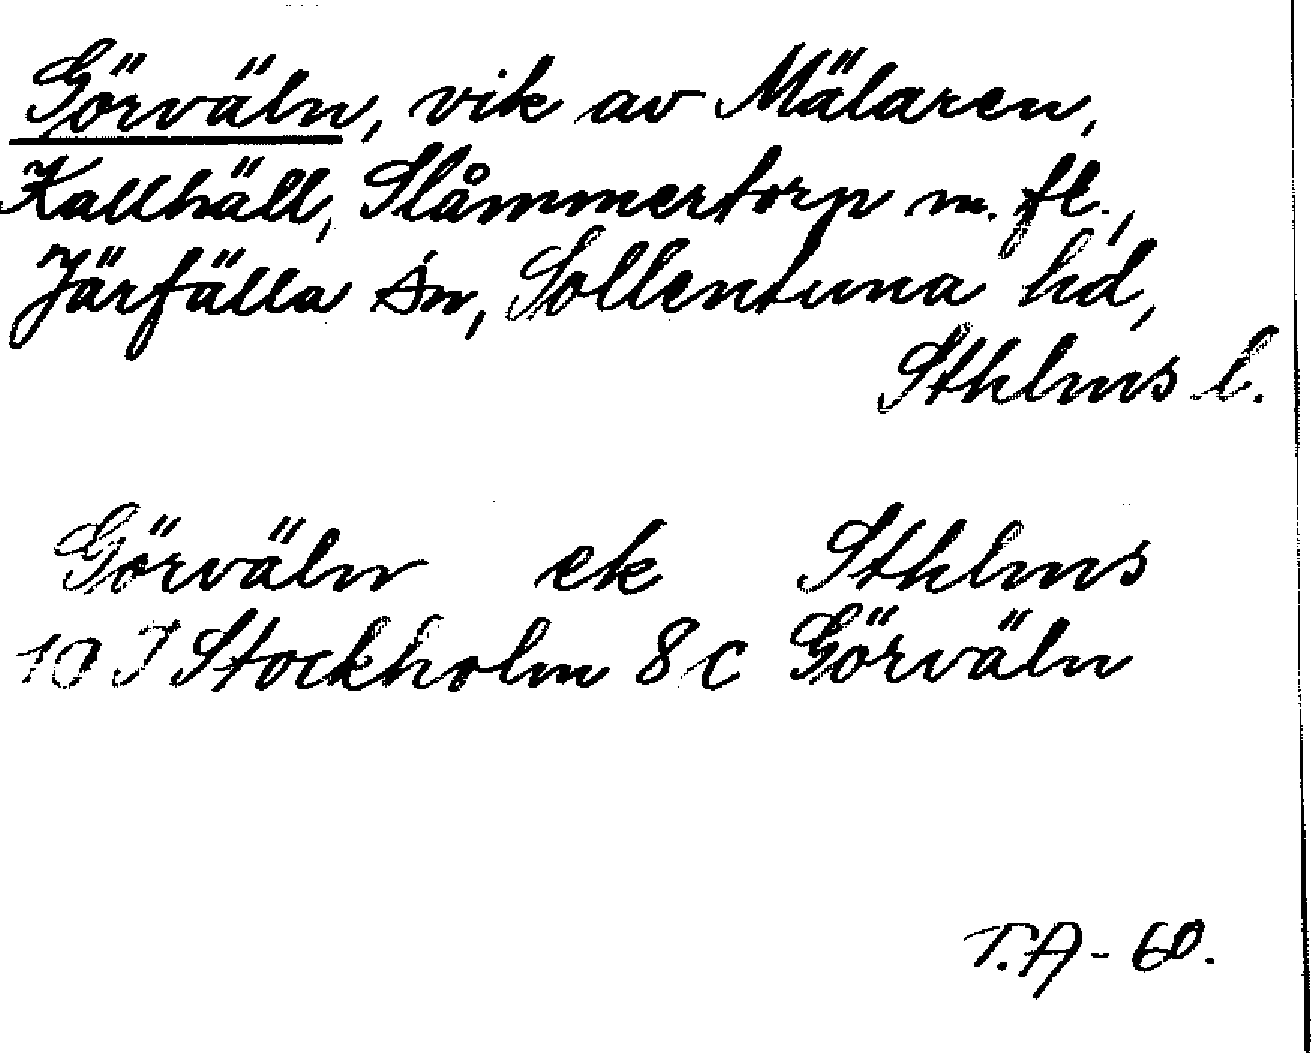 Görväln, vik av Mälaren,
Kallhäll, Slåmmertorp m. fl.,
Järfälla sn, Sollentuna hd,
Sthlms l.
Görväln ek Sthlms
10 I Stockholm 8 c Görväln
T.A - 60.